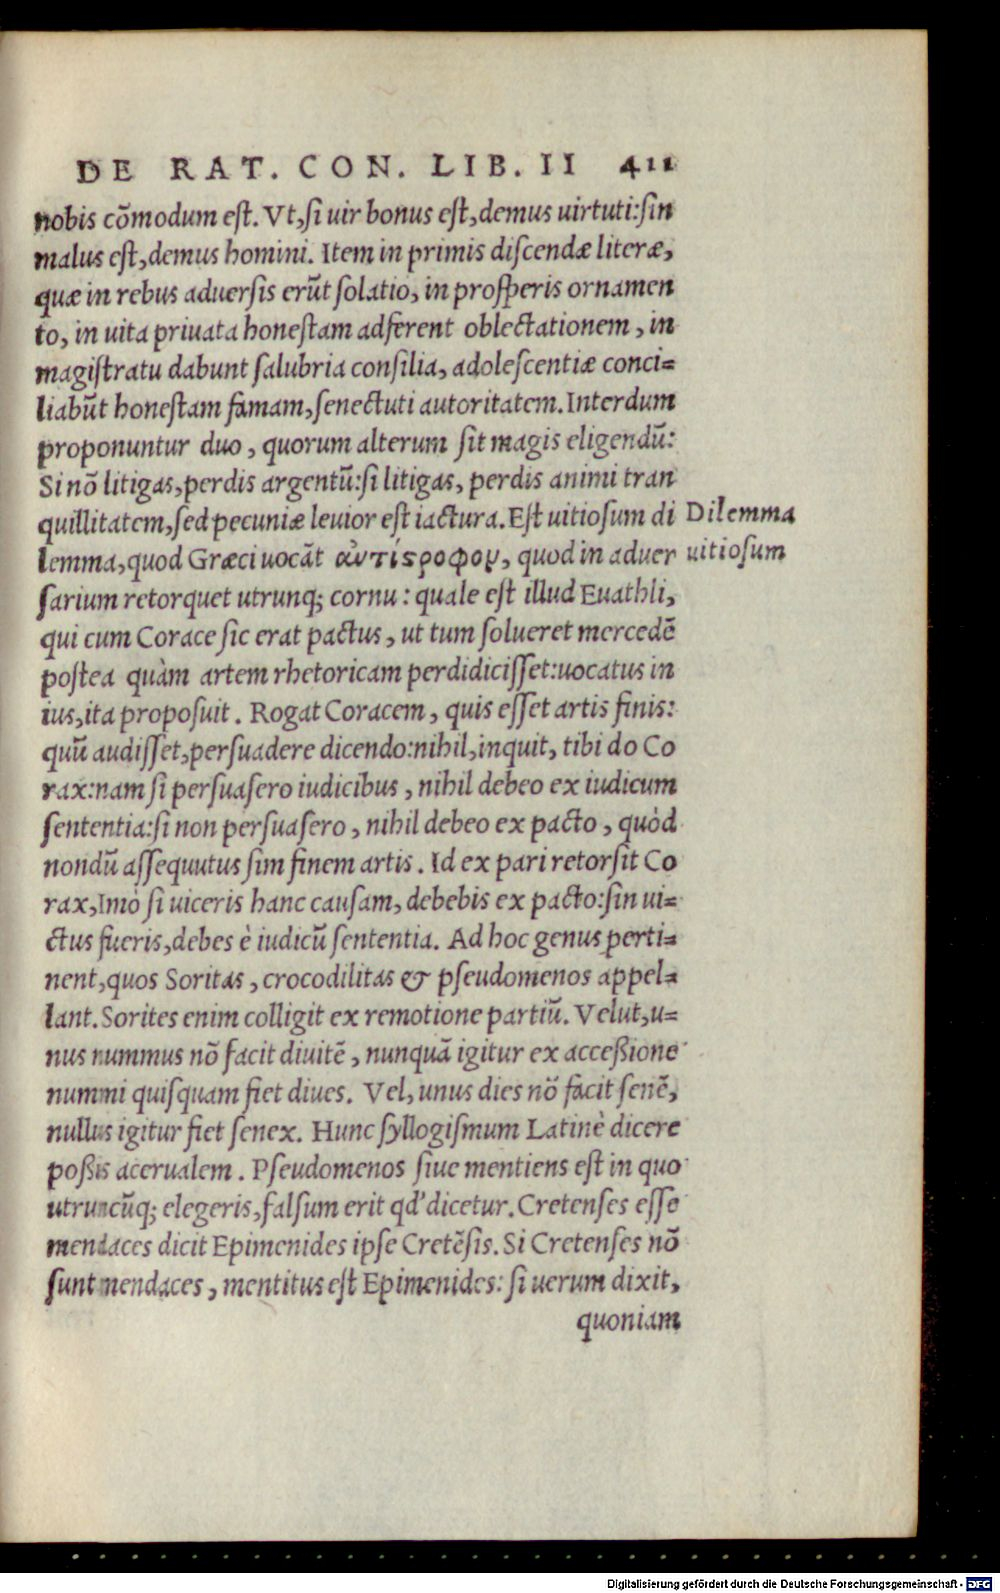 DE RAT. CON. LIB. II 411
nobis cōmodum eſt. Vt, ſi uir bonus eſt, demus uirtuti: ſin
malus eſt, demus homini. Item in primis diſcendæ literæ,
quæ in rebus aduerſis erūt ſolatio, in proſperis ornamen
to, in uita priuata honeſtam adferent oblectationem, in
magiſtratu dabunt ſalubria conſilia, adoleſcentiæ conci=
liabūt honeſtam famam, ſenectuti autoritatem. Interdum
proponuntur duo, quorum alterum ſit magis eligendū:
Si nō litigas, perdis argentū: ſi litigas, perdis animi tran
quillitatem, ſed pecuniæ leuior eſt iactura. Eſt uitioſum di
Dilemma
lemma, quod Græci uocāt ἀντίϛροφον, quod in aduer
uitioſum
ſarium retorquet utrunq; cornu: quale eſt illud Euathli,
qui cum Corace ſic erat pactus, ut tum ſolueret mercedē
poſtea quàm artem rhetoricam perdidiciſſet: uocatus in
ius, ita propoſuit. Rogat Coracem, quis eſſet artis finis:
quū audiſſet, perſuadere dicendo: nihil, inquit, tibi do Co
rax: nam ſi perſuaſero iudicibus, nihil debeo ex iudicum
ſententia: ſi non perſuaſero, nihil debeo ex pacto, quòd
nondū aſſequutus ſim finem artis. Id ex pari retorſit Co
rax, Imò ſi uiceris hanc cauſam, debebis ex pacto: ſin ui=
ctus fueris, debes è iudicū ſententia. Ad hoc genus perti=
nent, quos Soritas, crocodilitas & pſeudomenos appel=
lant. Sorites enim colligit ex remotione partiū. Velut, u=
nus nummus nō facit diuitē, nunquā igitur ex acceßione
nummi quiſquam fiet diues. Vel, unus dies nō facit ſenē,
nullus igitur fiet ſenex. Hunc ſyllogiſmum Latinè dicere
poßis aceruálem. Pſeudomenos ſiue mentiens eſt in quo
utruncūq; elegeris, falſum erit qd' dicetur. Cretenſes eſſe
mendaces dicit Epimenides ipſe Cretēſis. Si Cretenſes nō
ſunt mendaces, mentitus eſt Epimenides: ſi uerum dixit,
quoniam
Digitalisierung gefördert durch die Deutsche Forschungsgemeinschaft - DFG